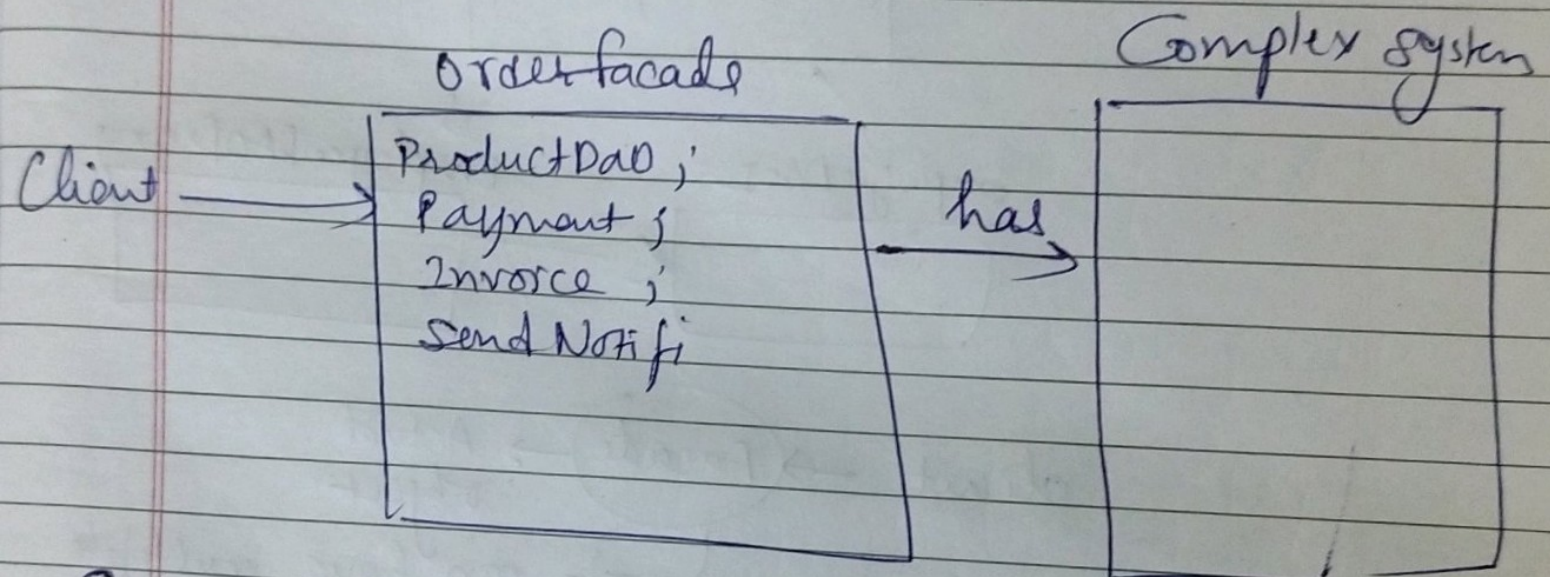 Orderfacade
Complex system
Client
ProductDao ;
Payment ;
has
Invoice ;
Send Notifi